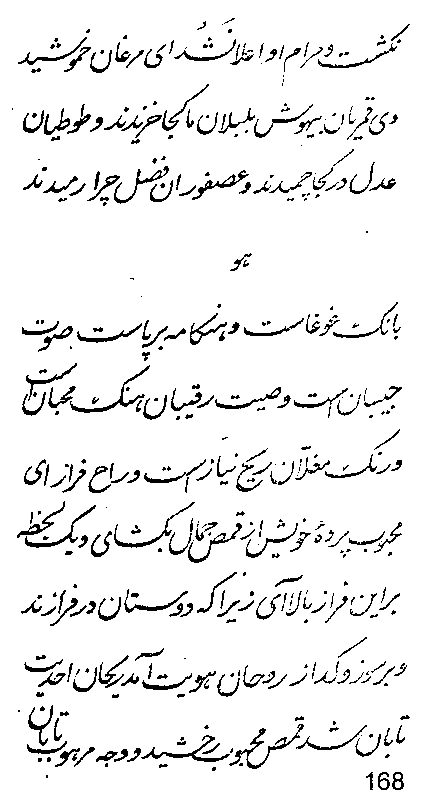 نکشت و مرام او اعلا نَشُد ای مرغان خموشید
و ی قمریان بیهوش بلبلان ما کجا خزیدند و طوطیان
عدل در کجا چمیدند و عصفوران فضل چرا رمیدند
هو
بانک غوغاست و هنکامه برپاست صوت
حبیبان است وصیت رقیبان هنک محبان است
و رنک مغلّان ریح نیاز است و راح فراز ای
محبوب پردهٔ خویش از قمص جمال بکشای و یک لحظه
بر این فراز بالا آی زیرا که دوستان در فرازند
و روحان هویت آمد ریحان احدیت
تابان شد قمص محبوب رخشید و وجه مرهوب تابان
168